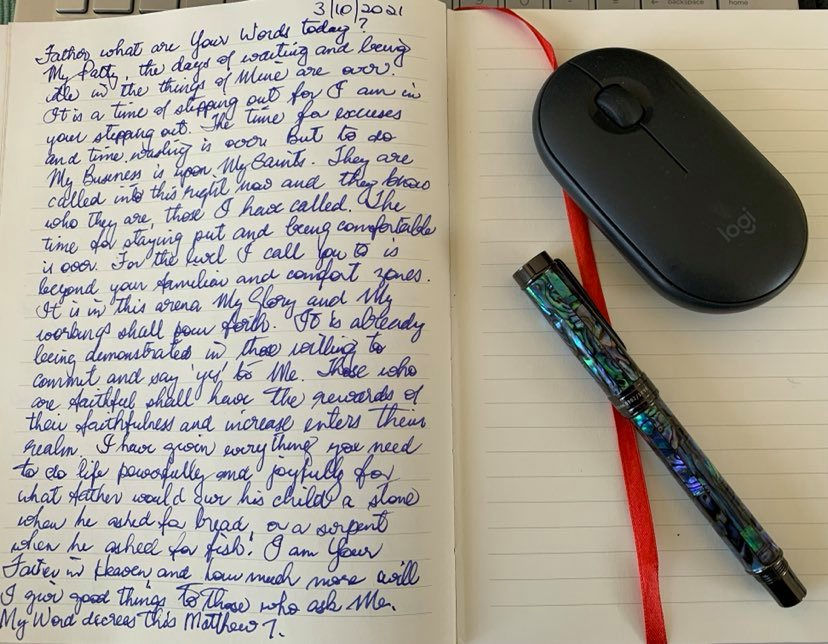 3/10/2021
Father what are Your Words today?
My Patty, the days of waiting and being
idle in the things of Mine are over.
It is a time of stepping out for I am in
your stepping out. The time for excuses
and time wasting is over but to do
My Business is upon My Saints. They are
called into this right now and they know
who they are, those I have called. The
time for staying put and being comfortable
is over. For the I call you to is
beyond your familiar and comfort zones.
It is in this arena My Glory and My
workings shall pour forth. It is already
being demonstrated in those willing to
commit and say 'yes' to Me. Those who
are faithful shall have the rewards of
their faithfulness and increase enters their
realm. I have given everything you need
to do life powerfully and joyfully for
what father would his child a stone
when he asked for bread, or a serpent
when he asked for fish! I am Your
Father in Heaven and how much more will
I give good things to those who ask Me.
My Word decrees this Matthew 7.
logi
backspace
home